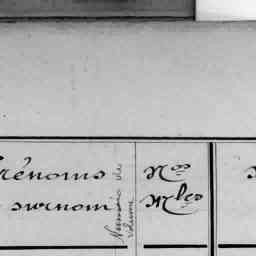 rénoms
surnom
Numéro du
volume
Nos
Mles